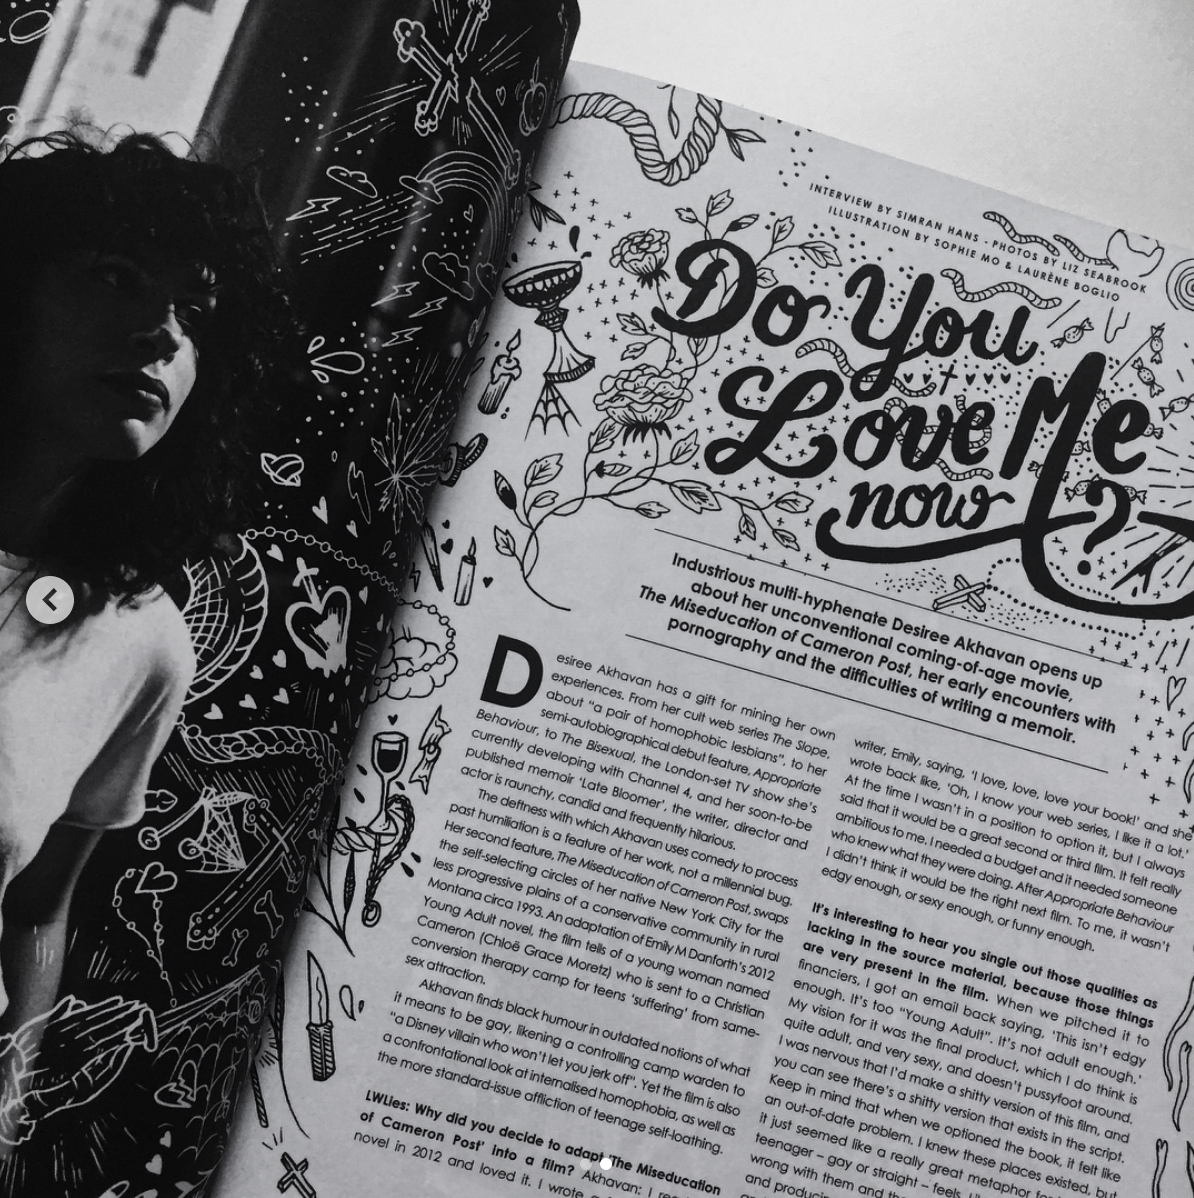 INTERVIEW BY SIMRAN HANS · PHOTOS BY LIZ SEABROOK
ILLUSTRATION BY SOPHIE MO & LAURÈNE BOGLIO
Do You
Love Me
now ?
Industrious multi-hyphenate Desiree Akhavan opens up
about her unconventional coming-of-age movie,
The Miseducation of Cameron Post, her early encounters with
pornography and the difficulties of writing a memoir.
Desiree Akhavan has a gift for mining her own
experiences. From her cult web series The Slope,
about “a pair of homophobic lesbians”, to her
semi-autobiographical debut feature, Appropriate
Behaviour, to The Bisexual, the London-set TV show she’s
currently developing with Channel 4, and her soon-to-be
published memoir ‘Late Bloomer’, the writer, director and
actor is raunchy, candid and frequently hilarious.
The deftness with which Akhavan uses comedy to process
past humiliation is a feature of her work, not a millennial bug.
Her second feature, The Miseducation of Cameron Post, swaps
the self-selecting circles of her native New York City for the
less progressive plains of a conservative community in rural
Montana circa 1993. An adaptation of Emily M Danforth’s 2012
Young Adult novel, the film tells of a young woman named
Cameron (Chloë Grace Moretz) who is sent to a Christian
conversion therapy camp for teens ‘suffering’ from same-
sex attraction.
Akhavan finds black humour in outdated notions of what
it means to be gay, likening a controlling camp warden to
“a Disney villain who won’t let you jerk off”. Yet the film is also
a confrontational look at internalised homophobia, as well as
the more standard-issue affliction of teenage self-loathing.
LWLies: Why did you decide to adapt ‘The Miseducation
of Cameron Post’ into a film? Akhavan: I read
novel in 2012 and loved it. I wrote
writer, Emily, saying, ‘I love, love, love your book!’ and she
wrote back like, ‘Oh, I know your web series, I like it a lot.’
At the time I wasn’t in a position to option it, but I always
said that it would be a great second or third film. It felt really
ambitious to me. I needed a budget and it needed someone
who knew what they were doing. After Appropriate Behaviour
I didn’t think it would be the right next film. To me, it wasn’t
edgy enough, or sexy enough, or funny enough.
It’s interesting to hear you single out those qualities as
lacking in the source material, because those things
are very present in the film. When we pitched it to
financiers, I got an email back saying, ‘This isn’t edgy
enough. It’s too “Young Adult”. It’s not adult enough.’
My vision for it was the final product, which I do think is
quite adult, and very sexy, and doesn’t pussyfoot around.
I was nervous that I’d make a shitty version of this film, and
you can see there’s a shitty version that exists in the script.
Keep in mind that when we optioned the book, it felt like
an out-of-date problem. I knew these places existed, but
it just seemed like a really great metaphor for
teenager – gay or straight – feels.
wrong with them and
and